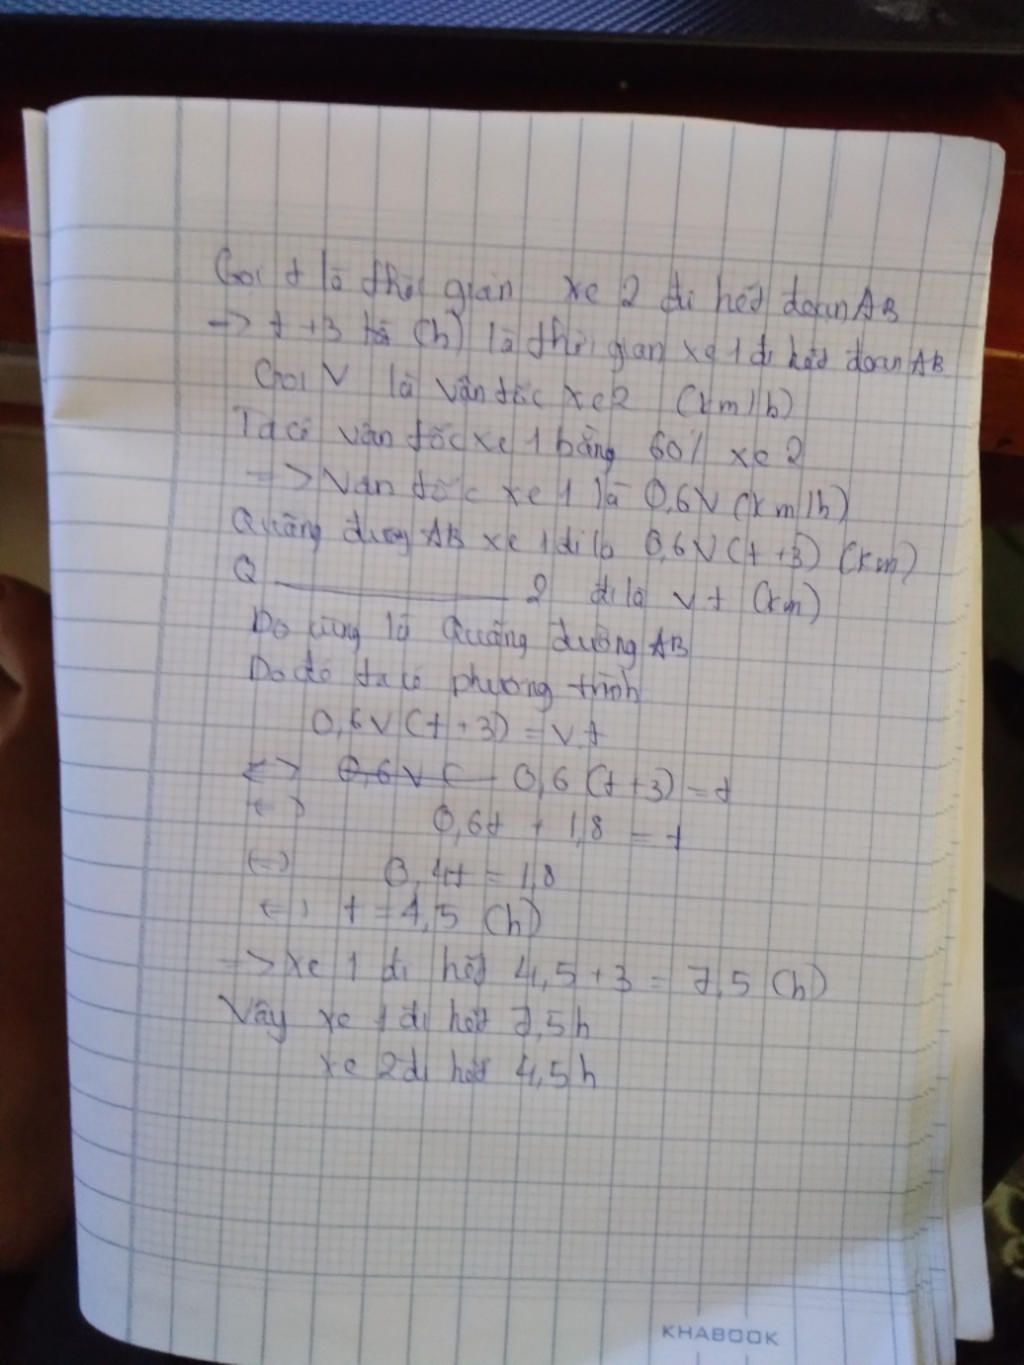 Gọi t là thời gian xe 2 đi hết đoạn AB
-> t +3 (h) là thời gian xe 1 đi hết đoạn AB
Gọi V là vận tốc xe 2 (km/h)
Ta có vận tốc xe 1 bằng 60% xe 2
=> Vận tốc xe 1 là 0,6V (km/h)
Quãng đường AB xe 1 đi là 0,6V(t+3) (km)
Q ——— 2 đi là vt (km)
Do cùng là Quãng đường AB
Do đó ta có phương trình
0,6V(t+3) = V.t
<=> 0,6V( 0,6(t+3) = t
<=> 0,6t + 1,8 = t
<=> 0,4t = 1,8
<=> t = 4,5 (h)
-> xe 1 đi hết 4,5+3 = 7,5 (h)
Vậy xe 1 đi hết 7,5h
xe 2 đi hết 4,5h
KHABOOK